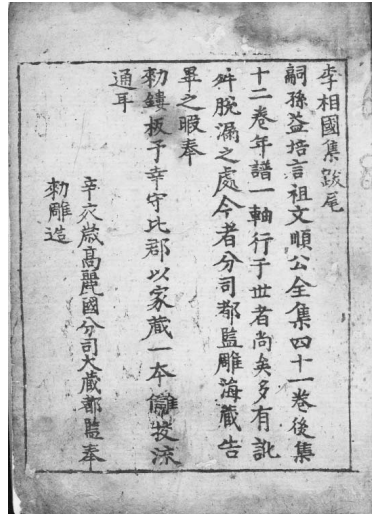 李相國集跋尾
嗣孫益培言祖文順公全集四十一卷後集
十二卷年譜一軸行于世者尚矣多有訛
舛脫漏之處今者分司都監雕海藏告
畢之暇奉
勑鏤板予幸守比郡以家蔵一本讎挍流
通耳
辛亥歳高麗國分司大藏都監奉
勑雕造